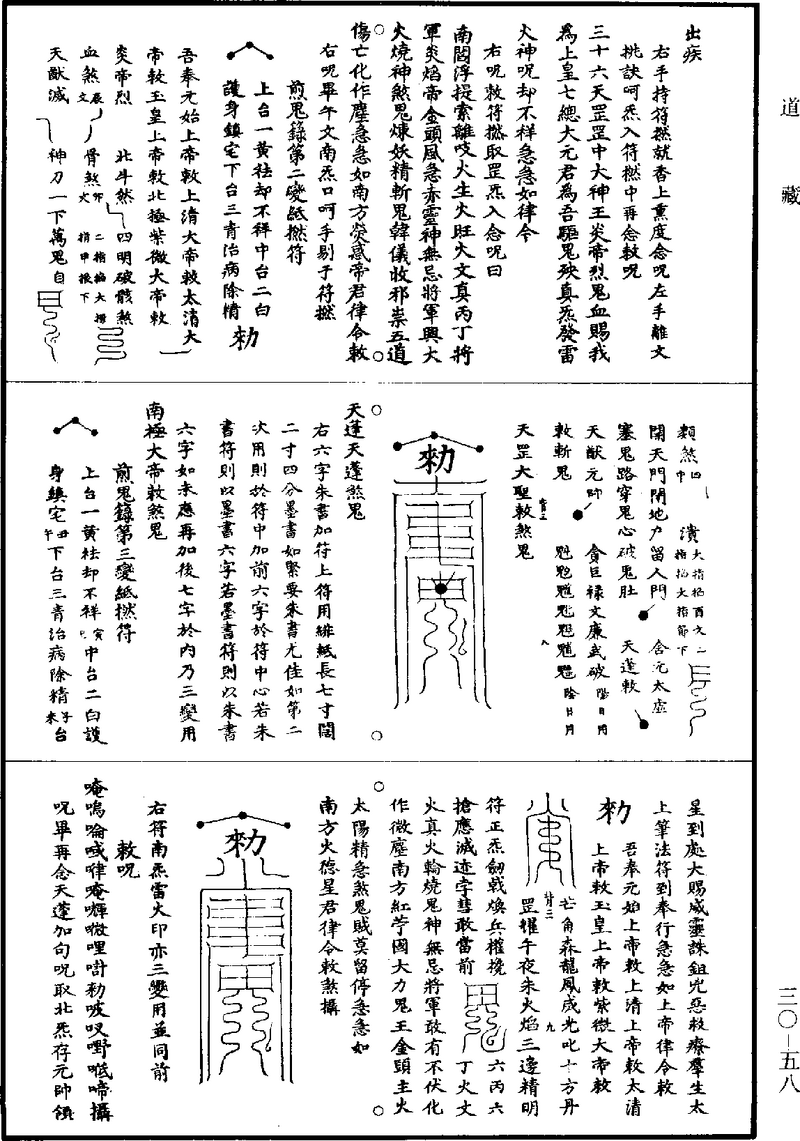 道藏
三〇—五八
出疾
右手持符撚就香上熏度念呪左手離文
挑訣呵炁入符撚中再念敕呪
三十六天罡罡中大神王炎帝烈鬼血賜我
為上皇七總大元君為吾驅鬼殃真炁發雷
火神呪却不祥急急如律令
右呪敕符撚取罡炁入念呪曰
南閻浮提索離吱火生火旺火文真丙丁將
軍炎焰帝金頭風急赤靈神無忌將軍興大
火燒神煞鬼煉妖精斬鬼韓儀收邪祟五道
傷亡化作塵急急如南方熒惑帝君律令敕
右呪畢午文南炁口呵手剔子符撚
煎鬼籙第二變紙撚符
上台一黃祛却不祥中台二白
護身鎮宅下台三青治病除精
敕
吾奉元始上帝敕上清大帝敕太清大
帝敕玉皇上帝敕北極紫微大帝敕
炎帝烈 北斗然 四明破骸煞
血煞 辰文 骨煞 卯文 二指掐大指
指甲根下
天猷滅 神刀一下萬鬼自
類煞 四中 潰 大指掐酉文二
指掐大指節下
開天門閉地戶留人門 含元太虛
塞鬼路穿鬼心破鬼肚 天蓬敕
天猷元帥 貪巨祿文廉武破 陽日月
敕斬鬼 魁𩲃䰢魓魒 陰日月
天罡大聖敕煞鬼
敕
天蓬天蓬煞鬼
右六字朱書加符上符用緋紙長七寸闊
二寸四分墨書如緊要朱書尤佳如第二
次用則於符中加前六字於符中心若朱
書符則以墨書六字若墨書符則以朱書
六字如未應再加後七字於內乃三變用
南極大帝敕煞鬼
煎鬼籙第三變紙撚符
上台一黃祛却不祥 寅 中台二白護
身鎮宅 丑午 下台三青治病除精 子 台
星到處大賜威靈誅鉏兇惡救療羣生太
上筆法符到奉行急急如上帝律令敕
敕
吾奉元始上帝敕上清上帝敕太清
上帝敕玉皇上帝敕紫微大帝敕
亡角森龍鳳成光叱十方丹
罡耀午夜朱火焰三邊精明
符正炁劍戟煥兵權攙
搶應滅迹孛彗敢當前 六丙六
丁火文
火真火輪燒鬼神無忌將軍敢有不伏化
作微塵南方紅苧國大力鬼王金頭主火
太陽精急煞鬼賊莫留停急急如
南方火德星君律令敕煞攝
敕
右符南炁雷火印亦三變用並同前
敕呪
唵嗚㘕㖪㗚唵㗲㗭哩㖷勑㕹叹嘢呧啼攝
呪畢再念天蓬加句呪取北炁存元帥領